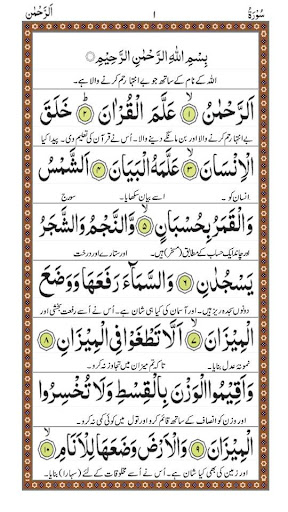 اَلرَّحْمٰن ۱ سُوْرَةُ
بِسْمِ اللهِ الرَّحْمٰنِ الرَّحِيْمِ
اللہ کے نام کے ساتھ جو بے انتہا رحم کرنے والا ہے۔
اَلرَّحْمٰنُ ۱ عَلَّمَ الْقُرْاٰنَ ۲ خَلَقَ
بے انتہا رحم کرنے والا اور بن مانگے دینے والا۔ اُس نے قرآن کی تعلیم دی۔ پیدا کیا
الْاِنْسَانَ ۳ عَلَّمَهُ الْبَيَانَ ۴ اَلشَّمْسُ
انسان کو۔ اسے بیان سکھایا۔ سورج
وَالْقَمَرُ بِحُسْبَانٍ ۵ وَّالنَّجْمُ وَالشَّجَرُ
اور چاند ایک حساب کے مطابق (مسخر) ہیں۔ اور ستارے اور درخت
يَسْجُدٰنِ ۶ وَالسَّمَآءَ رَفَعَهَا وَوَضَعَ
دونوں سجدہ ریز ہیں۔ اور آسمان کی کیا ہی شان ہے۔ اُس نے اُسے رفعت بخشی اور
الْمِيْزَانَ ۷ اَلَّا تَطْغَوْا فِي الْمِيْزَانِ ۸
نمونۂ عدل بنایا۔ تاکہ تم میزان میں تجاوز نہ کرو۔
وَاَقِيْمُوا الْوَزْنَ بِالْقِسْطِ وَلَا تُخْسِرُوا
اور وزن کو انصاف کے ساتھ قائم کرو اور تول میں کوئی کمی نہ کرو۔
الْمِيْزَانَ ۹ وَالْاَرْضَ وَضَعَهَا لِلْاَنَامِ ۱۰
اور زمین کی بھی کیا شان ہے۔ اُس نے اُسے مخلوقات کے لئے (سہارا) بنایا۔